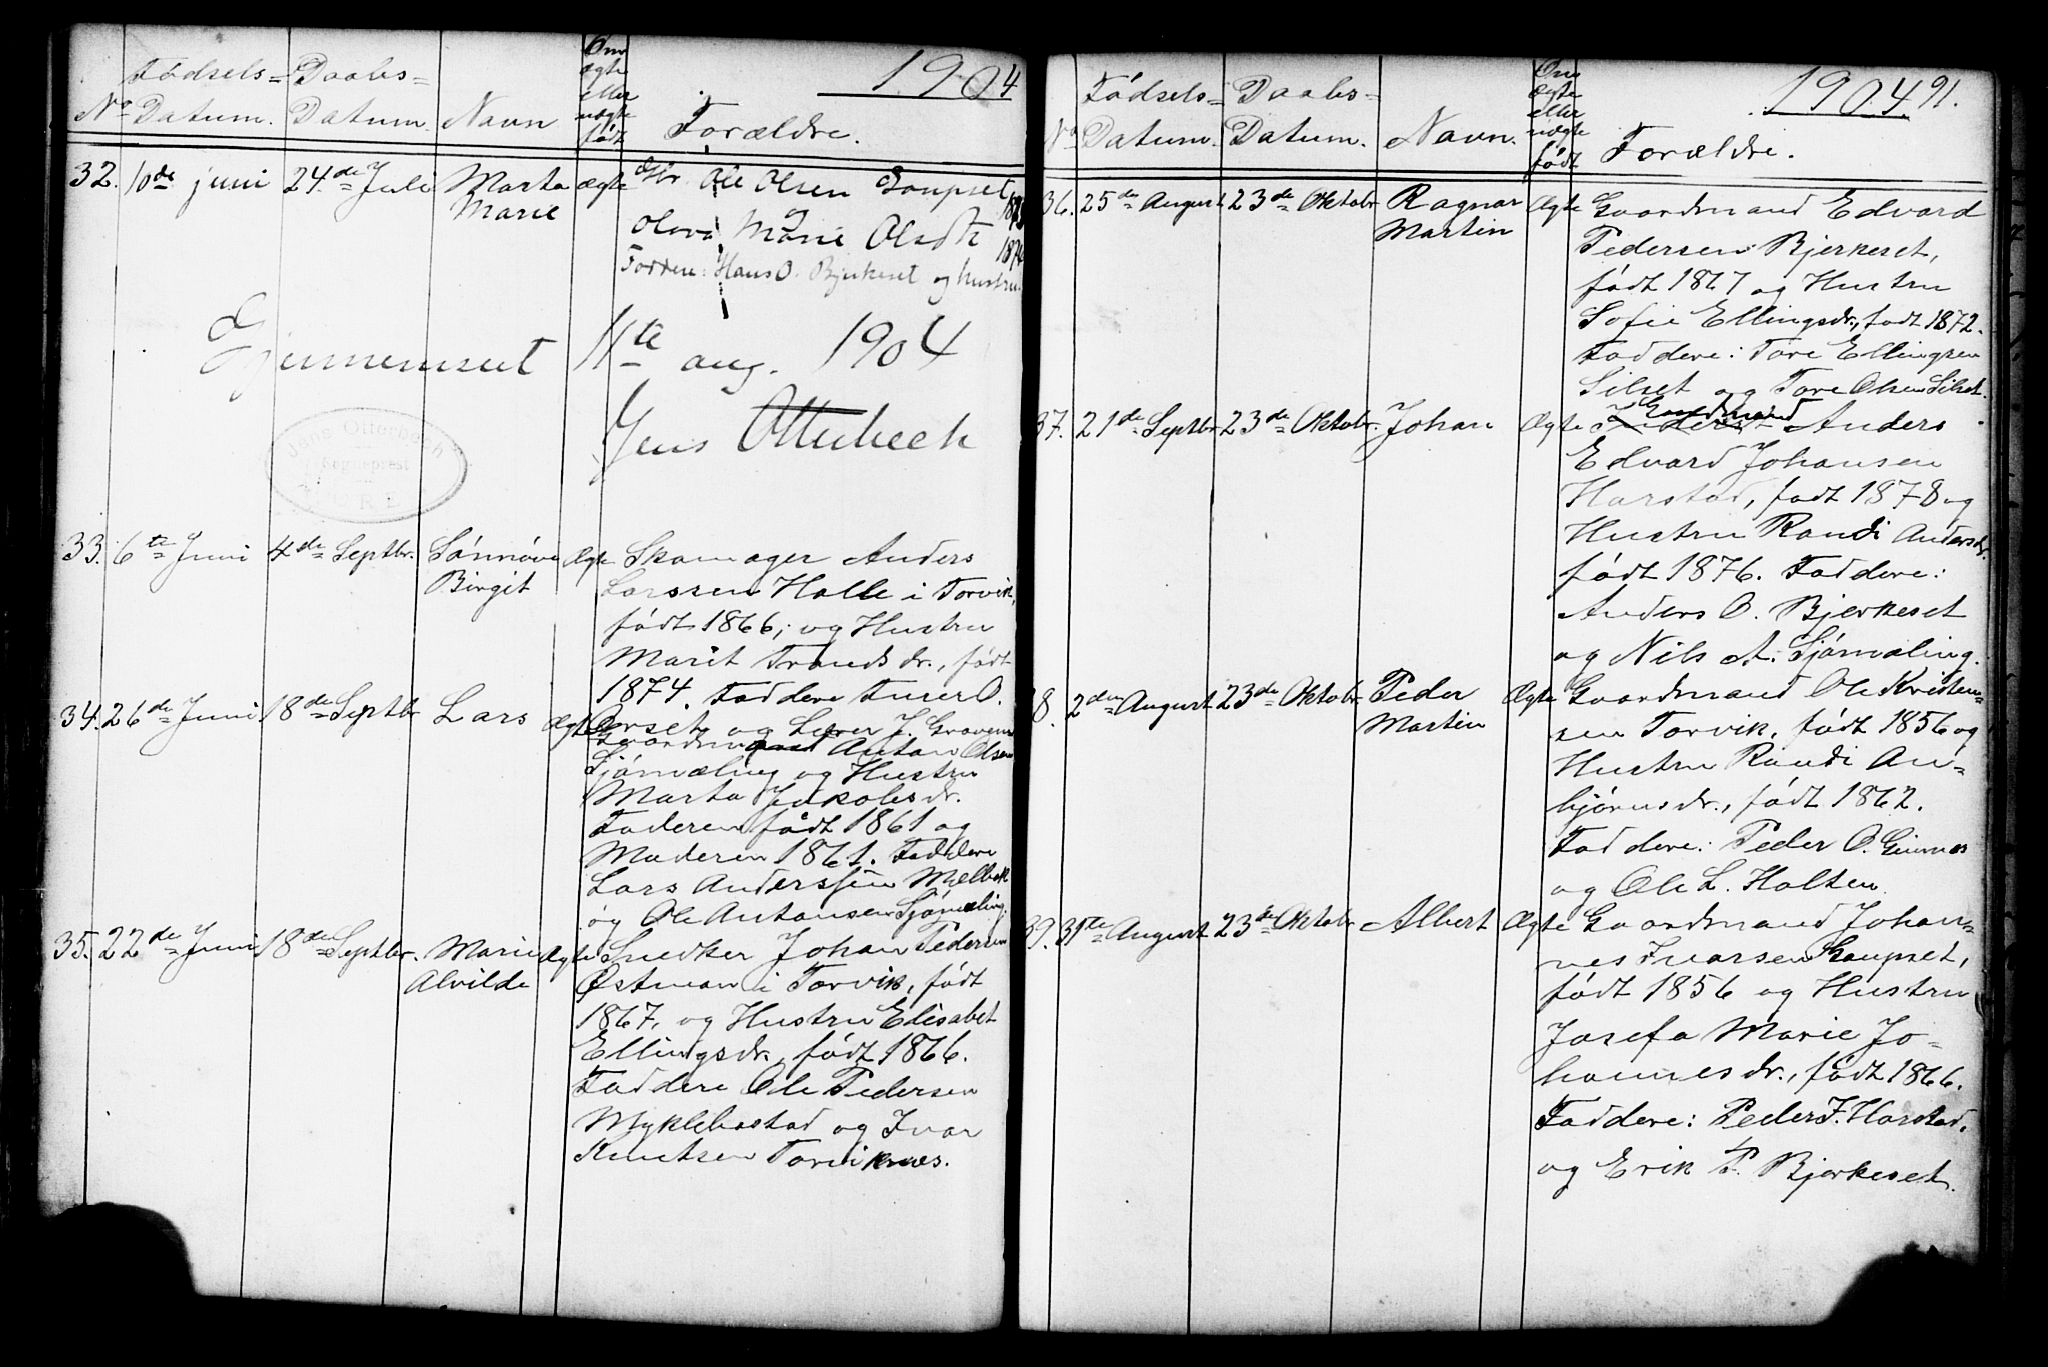 1904
No
Fødsels=
Datum.
Daabs=
Datum.
Navn
Om
ægte
eller
uægte
født
Forældre.
32. 10de juni 24.de Juli Marta
Marie
Ægte
Gbr. Ole Olsen Gaupset
Olava Marie Olsdtr
1876
Faddere: Hans O. Bjerkeset og hustru.
Gjennemseet 11te aug. 1904
Jens Otterbech
Jens Otterbech
Sogneprest
33. 6te Juni 4de Septbr. Sønnøve
Birgit
Ægte
Skomager Anders
Larssen Halle i Torvik,
født 1866; og Hustru
Marit Trondsdr., født
1874. Faddere Turer O.
Orset og Lærer J. Gravem
34. 26de Juni 18de Septbr Lars Ægte
Gaardmand Antan Olsen
Sjømæling og Hustru
Marta Jakobsdr.
Faderen født 1861 og
Moderen 1861. Faddere
Lars Anderssen Mælbek
og Ole Antonsen Sjømæling.
35. 22de Juni 18de Septbr. Marie
Alvilde
Ægte
Snedker Johan Pedersen
Østman i Torvik, født
1867, og Hustru Elisabet
Ellingsdr., født 1866.
Faddere Ole Pedersen
Myklebostad og Ivar
Knutsen Torviknes.
1904. 91.
No
Fødsels=
Datum.
Daabs=
Datum.
Navn.
Om
ægte
eller
uægte
født
Forældre.
36. 25de August 23de Oktobr Ragnar
Martin
Ægte
Gaardmand Edvard
Pedersen Bjerkeset,
født 1867 og Hustru
Sofie Ellingsdr., født 1872.
Faddere: Tore Ellingsen
Silset og Tore Olsen Silset.
37. 21de Septbr 23de Oktobr. Johan Ægte
Gaardmand
Anders
Edvard Johansen
Harstad, født 1878 og
Hustru Randi Andersdr.
født 1876. Faddere:
Anders O. Bjerkeset
og Nils A. Sjømæling.
38. 2den August 23de Oktobr. Peder
Martin
Ægte
Gaardmand Ole Kristen=
sen Torvik, født 1856 og
Hustru Randi An=
bjørnsdr., født 1862.
Faddere: Peder O. Gimnes
og Ole L. Holten
39. 31te August 23de Oktobr Albert Ægte
Gaardmand Johan=
nes Ivarsen Gaupset,
født 1856 og Hustru
Josefa Marie Jo=
hannesdr., født 1866.
Faddere: Peder J. Harstad,
og Erik P. Bjerkeset.